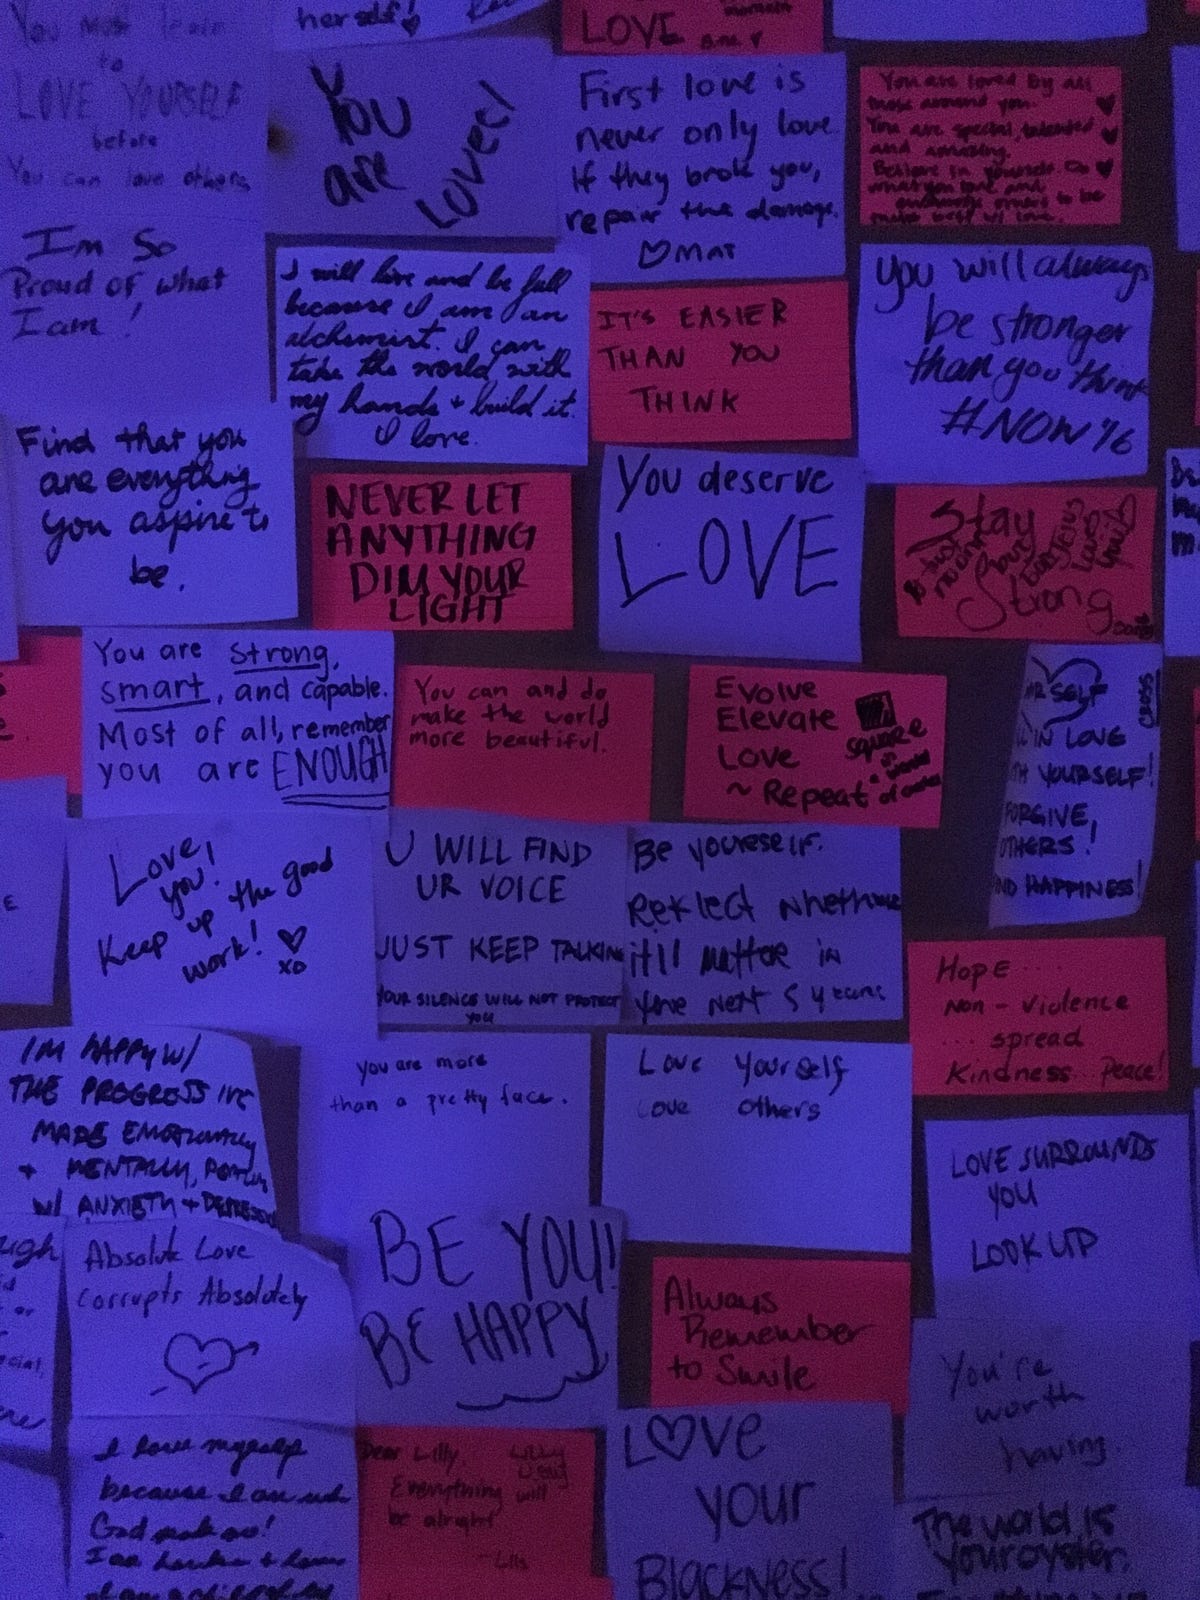 herself!
LOVE
You must learn
to
LOVE YOURSELF
before
You can love others
You
are
Loved
First love is
never only love
If they brok you,
repair the damage.
♡MAT
You are loved by all
those around you.
You are special, talented
and amazing.
Believe in yourself
I'm So
Proud of what
I am!
I will live and be full
because I am an
alchemist. I can
take the world with
my hands + build it.
I love.
IT'S EASIER
THAN YOU
THINK
You will always
be stronger
than you think
#NOW76
Find that you
are everything
you aspire to
be.
NEVER LET
ANYTHING
DIM YOUR
LIGHT
You deserve
LOVE
Stay
Strong
You are strong,
smart, and capable.
Most of all, remember
you are ENOUGH
You can and do
make the world
more beautiful.
Evolve
Elevate
Love
~ Repeat
square
SELF
IN LOVE
YOURSELF!
FORGIVE,
OTHERS!
HAPPINESS!
Love
you!
Keep up the good
work! ♡
xo
U WILL FIND
UR VOICE
JUST KEEP TALKING
YOUR SILENCE WILL NOT PROTECT
YOU
Be youreself.
Reflect whethere
it'll matter in
Hope....
Non-violence
... spread
Kindness.. Peace!
I'M HAPPY W/
THE PROGRESS I'VE
MADE EMOTIONALLY
+ MENTALLY,
W/ ANXIETY + DEPRESSION
you are more
than a pretty face.
Love Yourself
Love others
LOVE SURROUNDS
YOU
LOOK UP
Absolute Love
Corrupts Absolutely
BE YOU!
BE HAPPY
Always
Remember
to Smile
You're
worth
having.
I love myself
because I am
God
Dear Lilly,
Everything will
be alright
LOVE
YOUR
BLACKNESS!
The world is
your oyster.